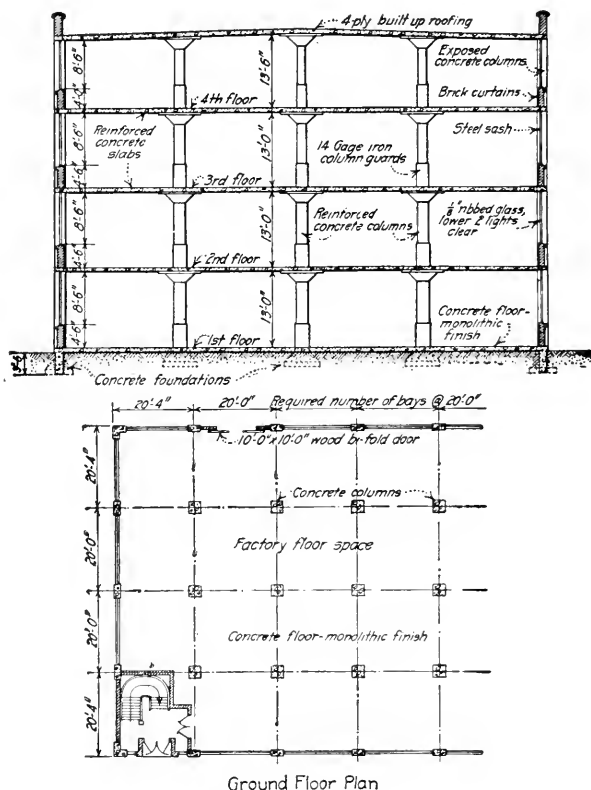 4-ply built up roofing
8'-6"
13'-6"
Exposed
concrete columns
4'-6"
4th floor
Brick curtains
Reinforced
concrete
slabs
8'-6"
13'-0"
14 Gage iron
column guards
Steel sash
4'-6"
3rd floor
8'-6"
13'-0"
Reinforced
concrete columns
1/8" ribbed glass,
lower 2 lights
clear
4'-6"
2nd floor
8'-6"
13'-0"
Concrete floor-
monolithic
finish
4'-6"
1st floor
Concrete foundations
20'-4" 20'-0" Required number of bays @ 20'-0"
10'-0" x 10'-0" wood bi-fold door
20'-4"
Concrete columns
20'-0"
Factory floor space
20'-0"
Concrete floor-monolithic finish
20'-4"
Ground Floor Plan